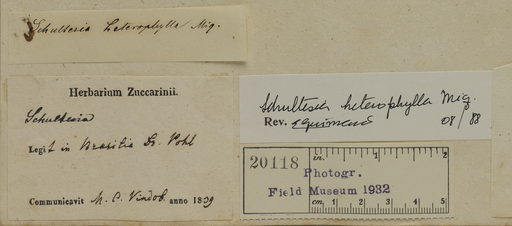 Schultesia heterophylla Miq.
Herbarium Zuccarinii.
Schultesia
Legit in Brasilia Dr. Pohl
Communicavit M. C. Vindob. anno 1839
Schultesia heterophylla Miq.
Rev. 08/88
20118
in. 1 2
Photogr.
Field Museum 1932
cm 1 2 3 4 5